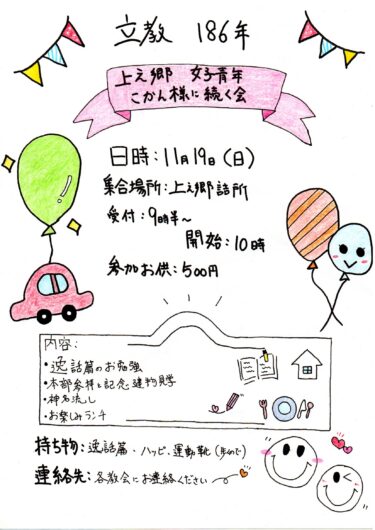 立教 186年
上之郷 女子青年
こかん様に続く会
日時：11月19日（日）
集合場所：上之郷詰所
受付：9時半～
開始：10時
参加お供：500円
内容：
・逸話篇のお勉強
・本部参拝と記念建物見学
・神名流し
・お楽しみランチ
持ち物：逸話篇・ハッピ・運動靴
連絡先：各教会にお連絡ください